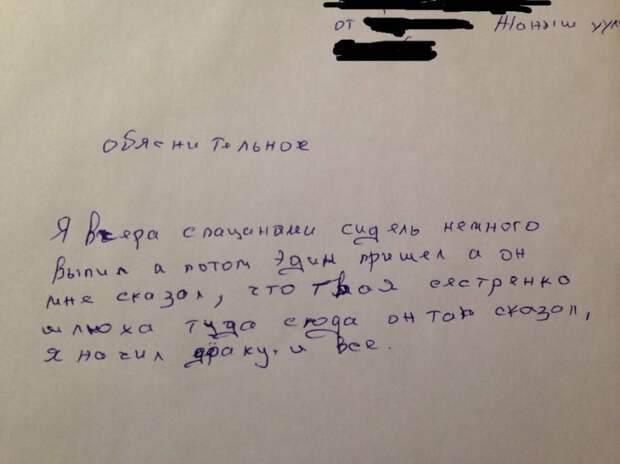 от Жаныш уул
обяснительное
Я вчера спацанами сидель немного
выпил а потом Эдик пришел а он
мне сказал, что твоя сестренко
шлюха туда сюда он так сказал,
я начил драку. и все.